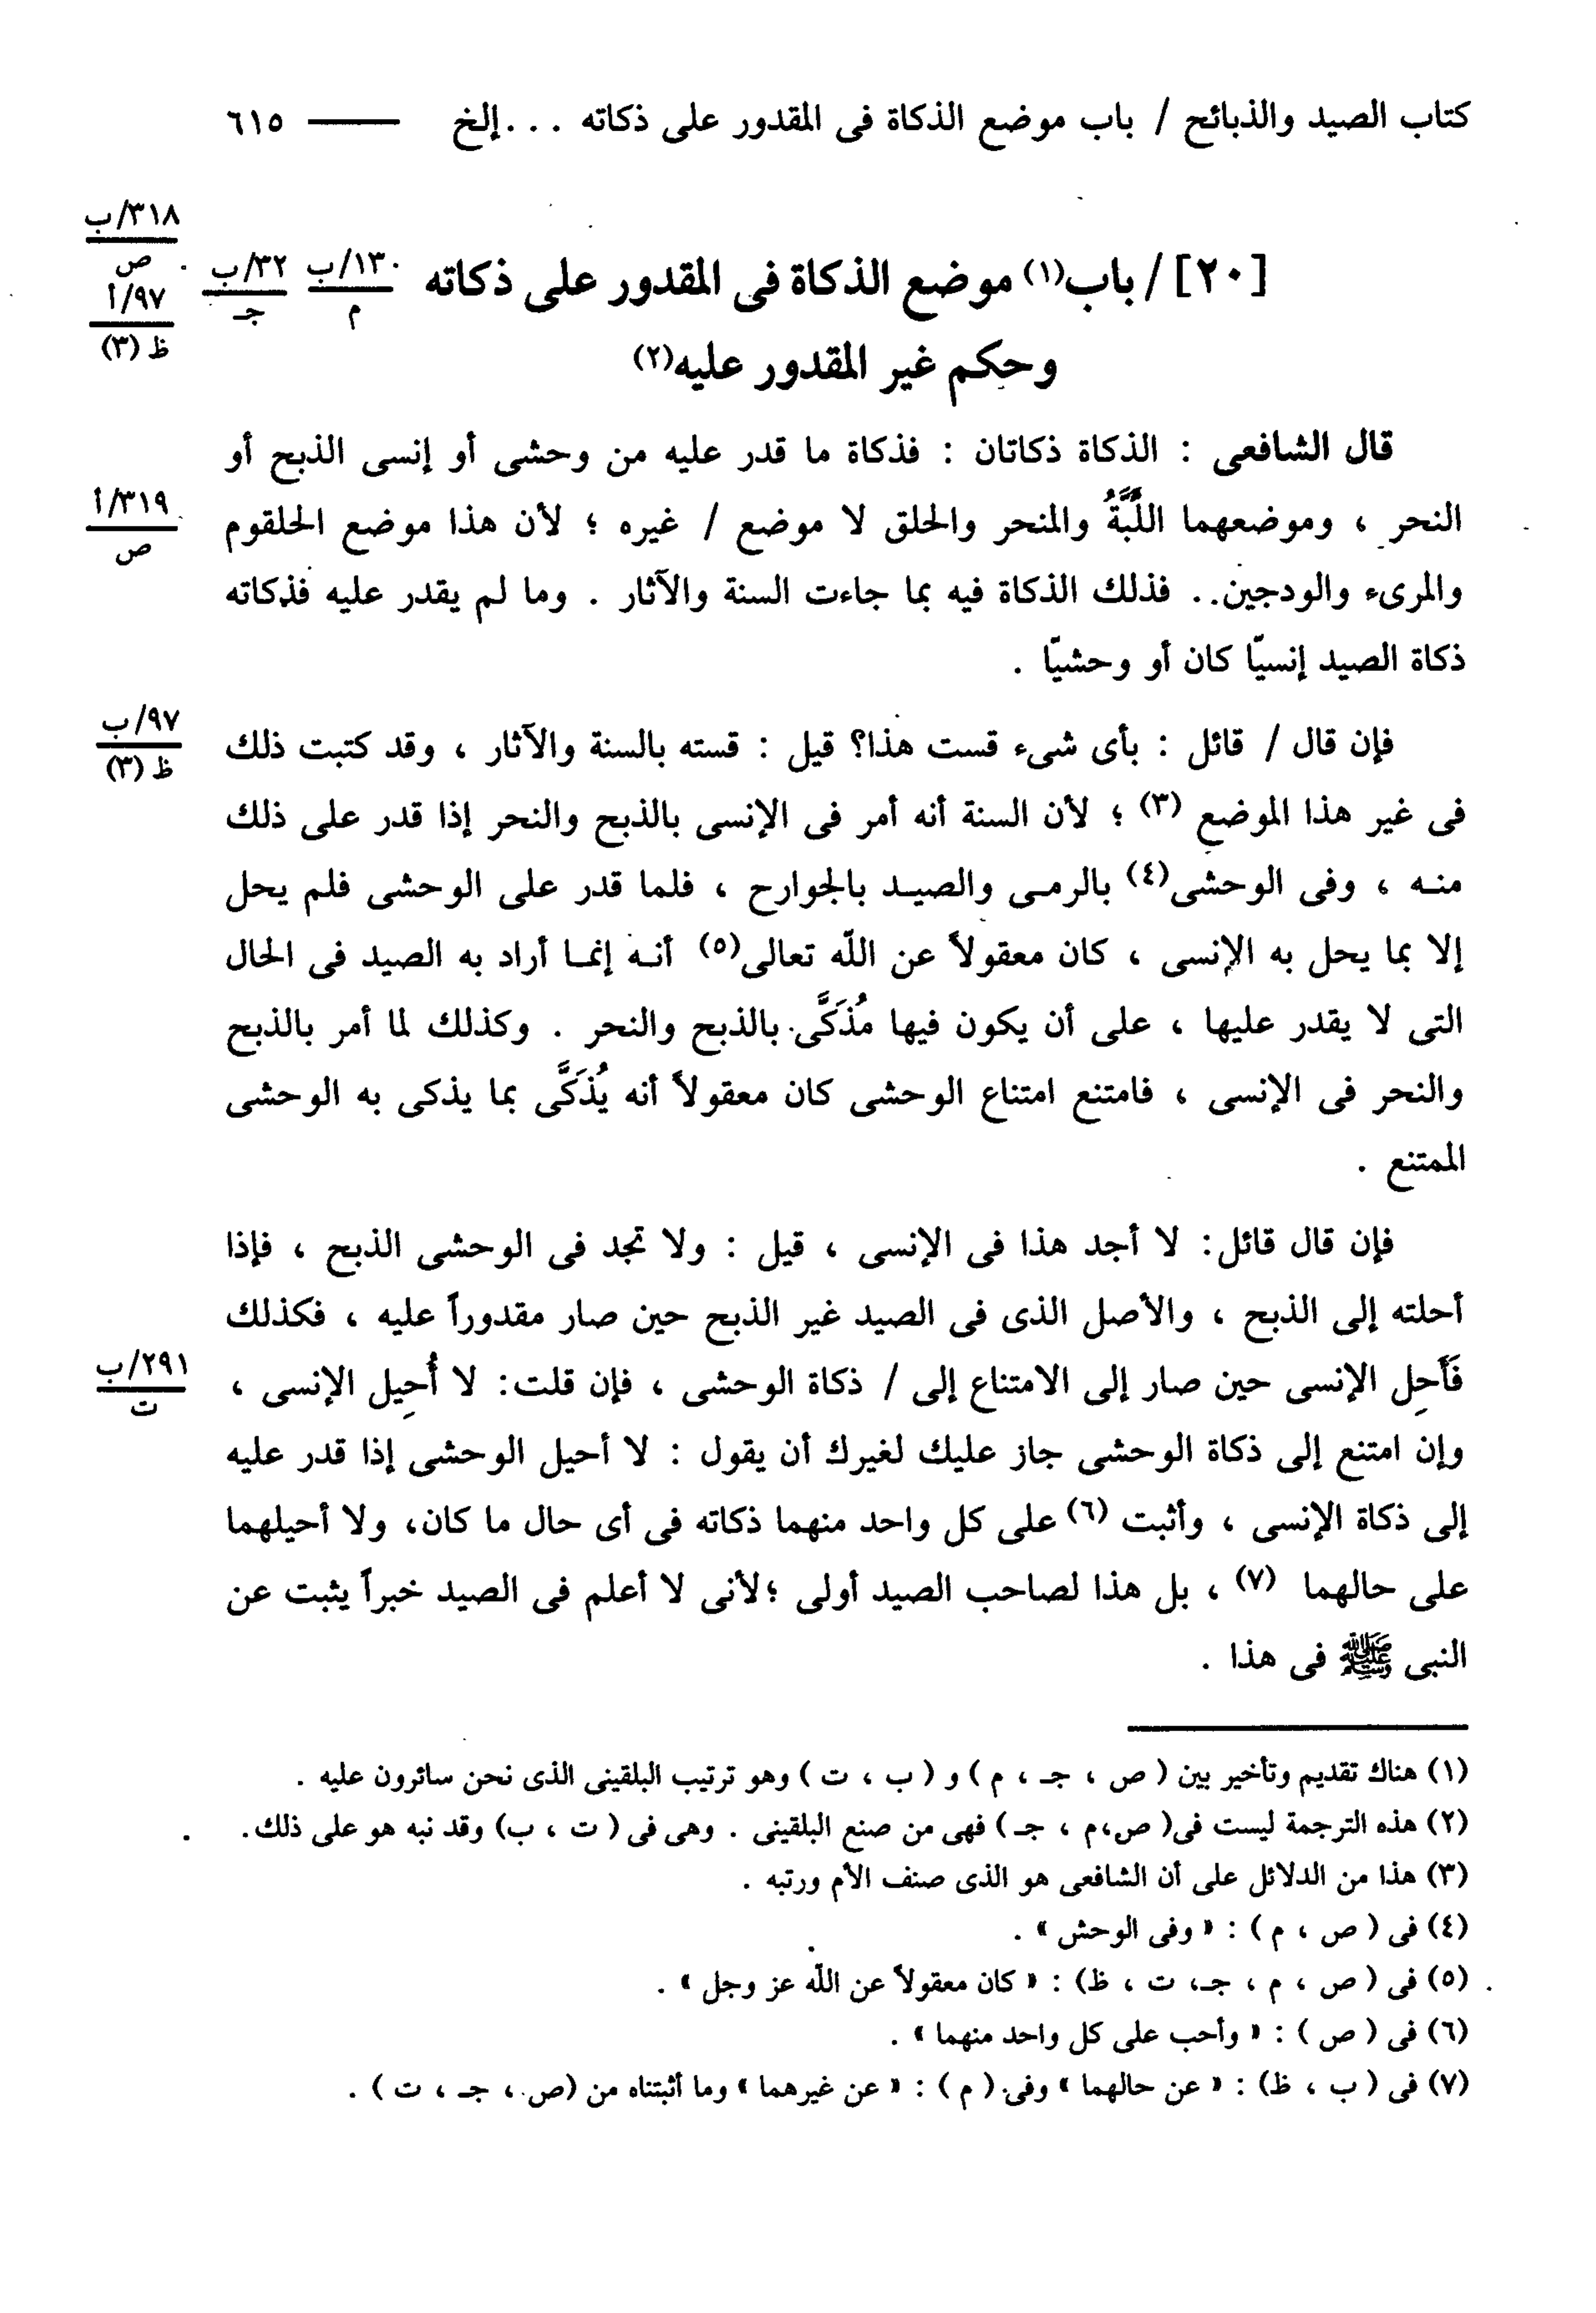 كتاب الصيد والذبائح / باب موضع الذكاة فى المقدور على ذكاته . . .إلخ —— ٦١٥
٣١٨/ب
ص
[٢٠] / باب(١) موضع الذكاة فى المقدور على ذكاته
١٣٠/ب
م
٣٢/ب
جـ
٩٧/أ
ظ (٣)
وحكم غير المقدور عليه(٢)
قال الشافعى : الذكاة ذكاتان : فذكاة ما قدر عليه من وحشى أو إنسى الذبح أو
النحر ، وموضعهما اللَّبَّةُ والمنحر والحلق لا موضع / غيره ؛ لأن هذا موضع الحلقوم
٣١٩/أ
ص
والمرىء والودجين.. فذلك الذكاة فيه بما جاءت السنة والآثار . وما لم يقدر عليه فذكاته
ذكاة الصيد إنسيّا كان أو وحشيّا .
فإن قال / قائل : بأى شىء قست هذا؟ قيل : قسته بالسنة والآثار ، وقد كتبت ذلك
٩٧/ب
ظ (٣)
فى غير هذا الموضع (٣) ؛ لأن السنة أنه أمر فى الإنسى بالذبح والنحر إذا قدر على ذلك
منـه ، وفى الوحشى(٤) بالرمـى والصيـد بالجوارح ، فلما قدر على الوحشى فلم يحل
إلا بما يحل به الإنسى ، كان معقولاً عن الله تعالى(٥) أنـه إنمـا أراد به الصيد فى الحال
التى لا يقدر عليها ، على أن يكون فيها مُذَكًّى بالذبح والنحر . وكذلك لما أمر بالذبح
والنحر فى الإنسى ، فامتنع امتناع الوحشى كان معقولاً أنه يُذَكَّى بما يذكى به الوحشى
الممتنع .
فإن قال قائل: لا أجد هذا فى الإنسى ، قيل : ولا تجد فى الوحشى الذبح ، فإذا
أحلته إلى الذبح ، والأصل الذى فى الصيد غير الذبح حين صار مقدوراً عليه ، فكذلك
فَأَحِل الإنسى حين صار إلى الامتناع إلى / ذكاة الوحشى ، فإن قلت: لا أُحِيل الإنسى ،
٢٩١/ب
ت
وإن امتنع إلى ذكاة الوحشى جاز عليك لغيرك أن يقول : لا أحيل الوحشى إذا قدر عليه
إلى ذكاة الإنسى ، وأثبت (٦) على كل واحد منهما ذكاته فى أى حال ما كان، ولا أحيلهما
على حالهما (٧) ، بل هذا لصاحب الصيد أولى ؛لأنى لا أعلم فى الصيد خبراً يثبت عن
النبى ﷺ فى هذا .
(١) هناك تقديم وتأخير بين ( ص ، جـ ، م ) و ( ب ، ت ) وهو ترتيب البلقينى الذى نحن سائرون عليه .
(٢) هذه الترجمة ليست فى( ص،م ، جـ ) فهى من صنع البلقينى . وهى فى ( ت ، ب) وقد نبه هو على ذلك.
(٣) هذا من الدلائل على أن الشافعى هو الذى صنف الأم ورتبه .
(٤) فى ( ص ، م ) : « وفى الوحش » .
(٥) فى ( ص ، م ، جـ، ت ، ظ) : « كان معقولاً عن الله عز وجل » .
(٦) فى ( ص ) : « وأحب على كل واحد منهما » .
(٧) فى ( ب ، ظ) : « عن حالهما » وفى ( م ) : « عن غيرهما » وما أثبتناه من (ص ، جـ ، ت ) .